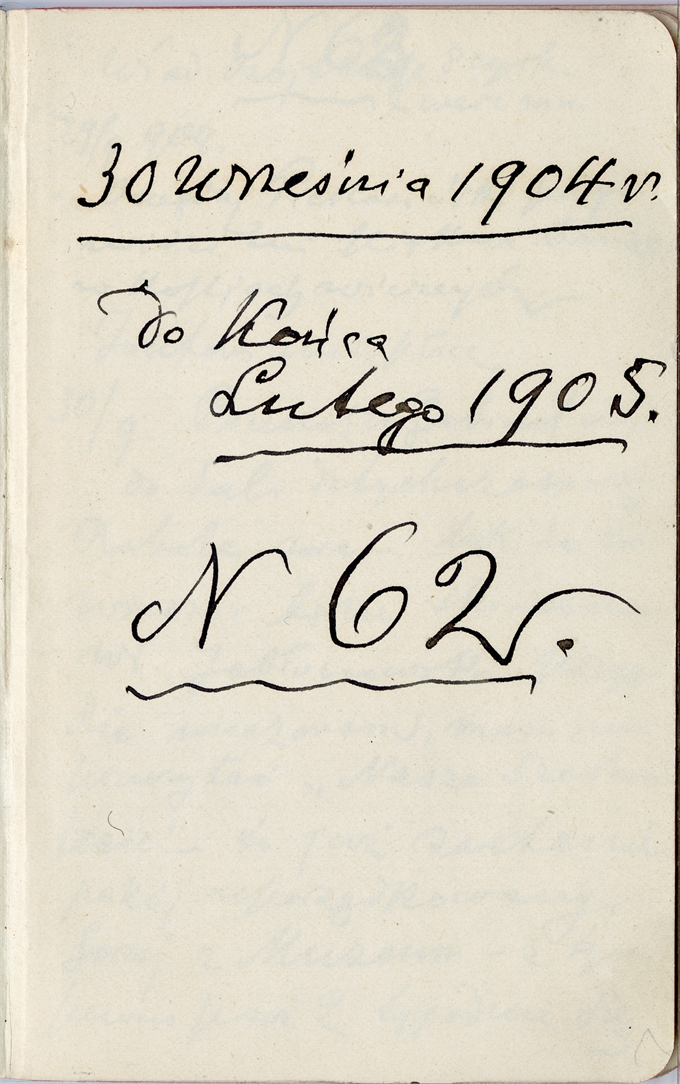 30 Września 1904 r.
do Końca
Lutego 1905.
N 62.